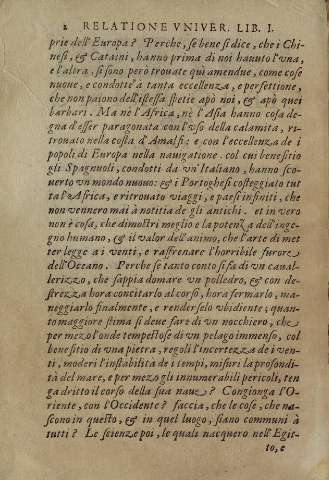 2 RELATIONE VNIVER. LIB. I.
prie dell'Europa? Perche, se bene si dice, che i Chi-
nesi, & Cataini, hanno prima di noi hauuto l'vna,
e l'altra. si sono però trouate quì amendue, come cose
nuoue, e condotte à tanta eccellenza, e perfettione,
che non paiono dell'istessa spetie apò noi, & apò quei
barbari. Ma nè l'Africa, nè l'Asia hanno cosa de-
gna d'esser paragonata con l'vso della calamita, ri-
trouato nella costa d'Amalfi; e con l'eccellenza de i
popoli di Europa nella nauigatione. col cui benefitio
gli Spagnuoli, condotti da vn'Italiano, hanno sco-
uerto vn mondo nuouo: & i Portoghesi costeggiato tut
ta l'Africa, e ritrouato viaggi, e paesi infiniti, che
non vennero mai à notitia de gli antichi. et in vero
non è cosa, che dimostri meglio e la potenza dell'inge-
gno humano, & il valor dell'animo, che l'arte di met
ter legge a i venti, e raffrenare l'horribile furore
dell'Oceano. Perche se tanto conto si fa di vn caual-
lerizzo, che sappia domare vn polledro, & con de-
strezza hora concitarlo al corso, hora fermarlo, ma-
neggiarlo finalmente, e renderselo vbidiente; quan-
to maggiore stima si deue fare di vn nocchiero, che
per mezo l'onde tempestose di vn pelago immenso, col
benefitio di vna pietra, regoli l'incertezza de i ven-
ti, moderi l'instabilità de i tempi, misuri la profondi-
tà del mare, e per mezo gli innumerabili pericoli, ten
ga dritto il corso della sua naue? Congionga l'O-
riente, con l'Occidente? faccia, che le cose, che na-
scono in questo, & in quel luogo, siano communi à
tutti? Le scienze poi, le quali nacquero nell'Egit-
to, e